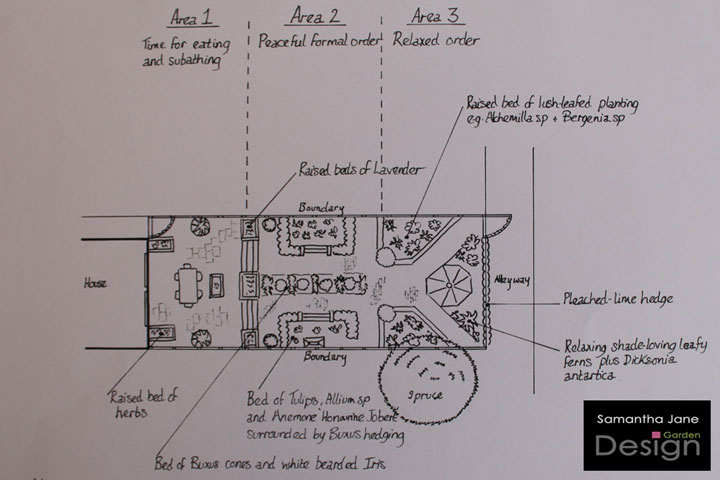 Area 1
Time for eating
and subathing
Area 2
Peaceful formal order
Area 3
Relaxed order
Raised bed of lush-leafed planting
e.g. Alchemilla sp + Bergenia sp
Raised beds of Lavender
Boundary
House
Alleyway
Pleached-lime hedge
Relaxing shade-loving leafy
ferns plus Dicksonia
antartica.
Boundary
Spruce
Raised bed of
herbs
Bed of Tulips, Allium sp
and Anemone 'Honorine Jobert'
surrounded by Buxus hedging
Bed of Buxus cones and white bearded Iris
Samantha Jane
Garden
Design